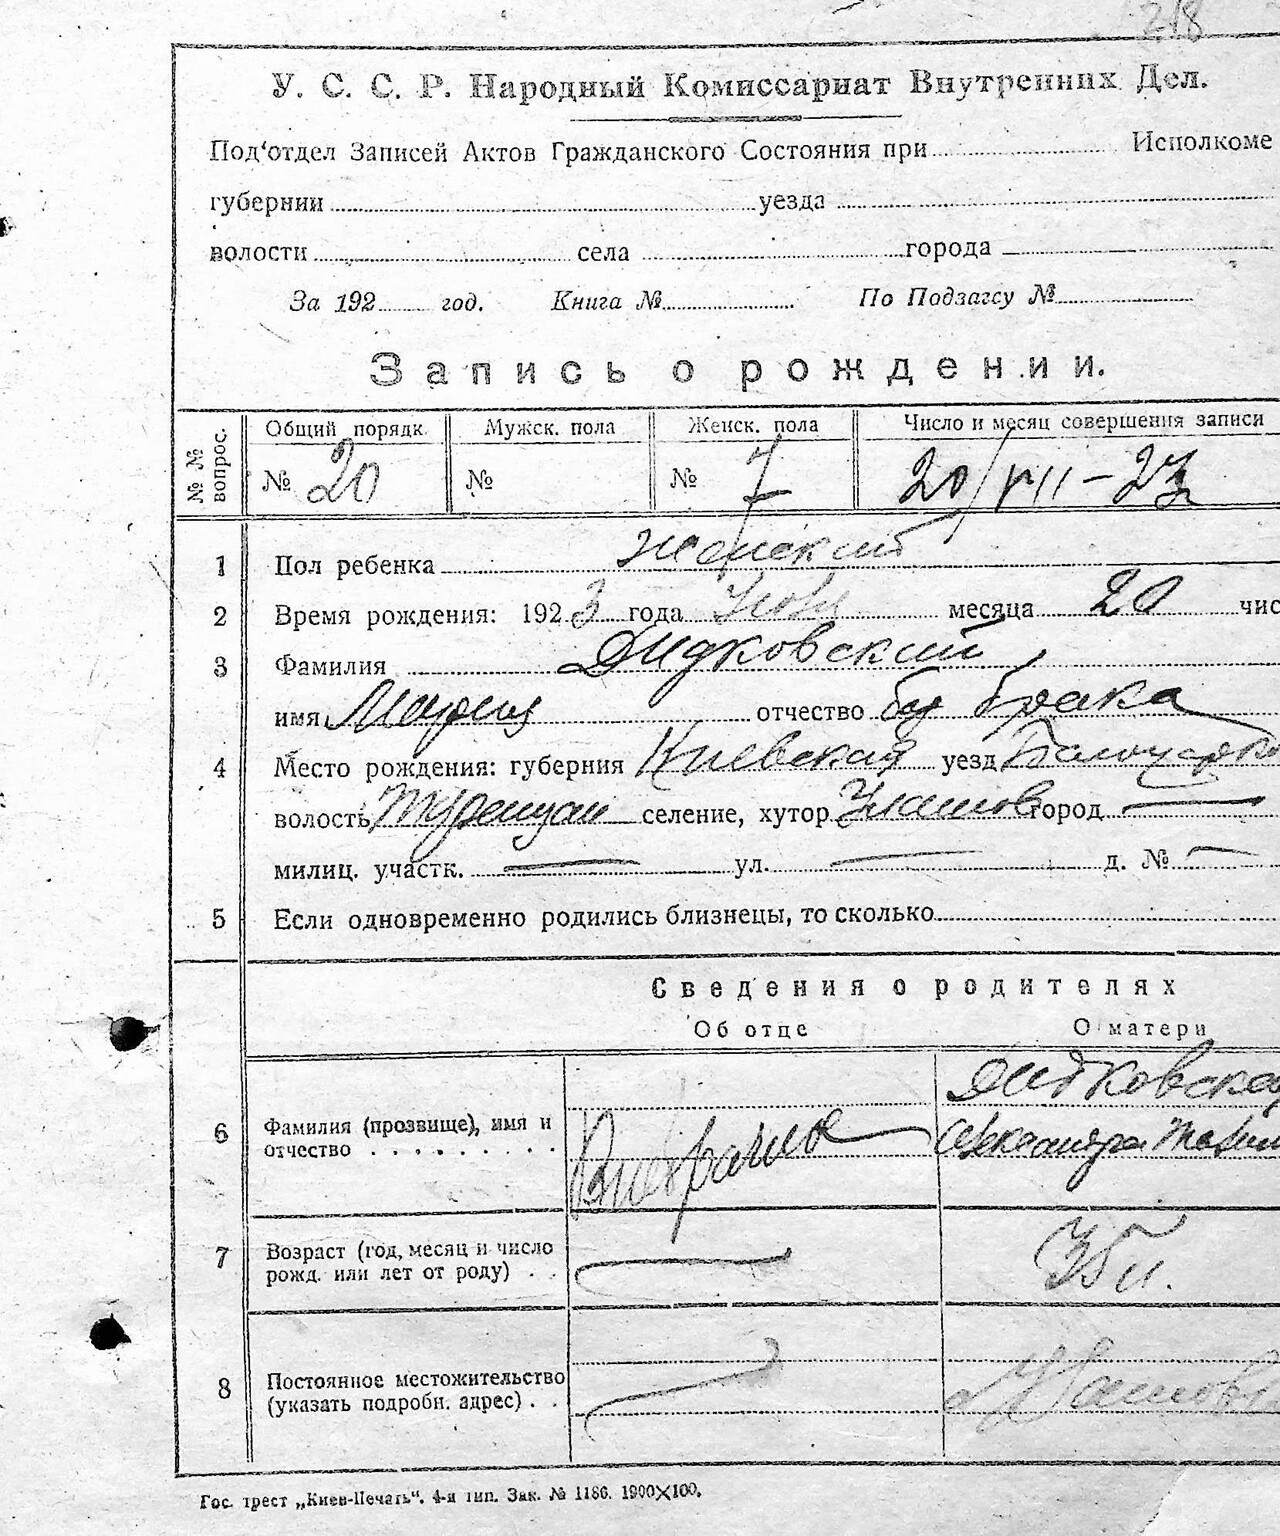 218
У. С. С. Р. Народный Комиссариат Внутренних Дел.
Под‘отдел Записей Актов Гражданского Состояния при Исполкоме
губернии уезда
волости села города
За 192 год. Книга № По Подзагсу №
Запись о рождении.
№ № вопрос.
Общий порядк. Мужск. пола Женск. пола Число и месяц совершения записи
№ 20 № № 7 20/VII-23
1 Пол ребенка женский
2 Время рождения: 1923 года месяца 20 чис
3 Фамилия Дидковский
имя Мария отчество брака
4 Место рождения: губерния Киевская уезд
волость селение, хутор город —
милиц. участк. — ул. — д. № —
5 Если одновременно родились близнецы, то сколько
Сведения о родителях
Об отце О матери
6 Фамилия (прозвище), имя и отчество Дидковская
Александра
7 Возраст (год, месяц и число рожд. или лет от роду) — 35 л.
8 Постоянное местожительство (указать подробн. адрес)
Гос. трест „Киев-Печать“. 4-я тип. Зак. № 1186. 1900×100.